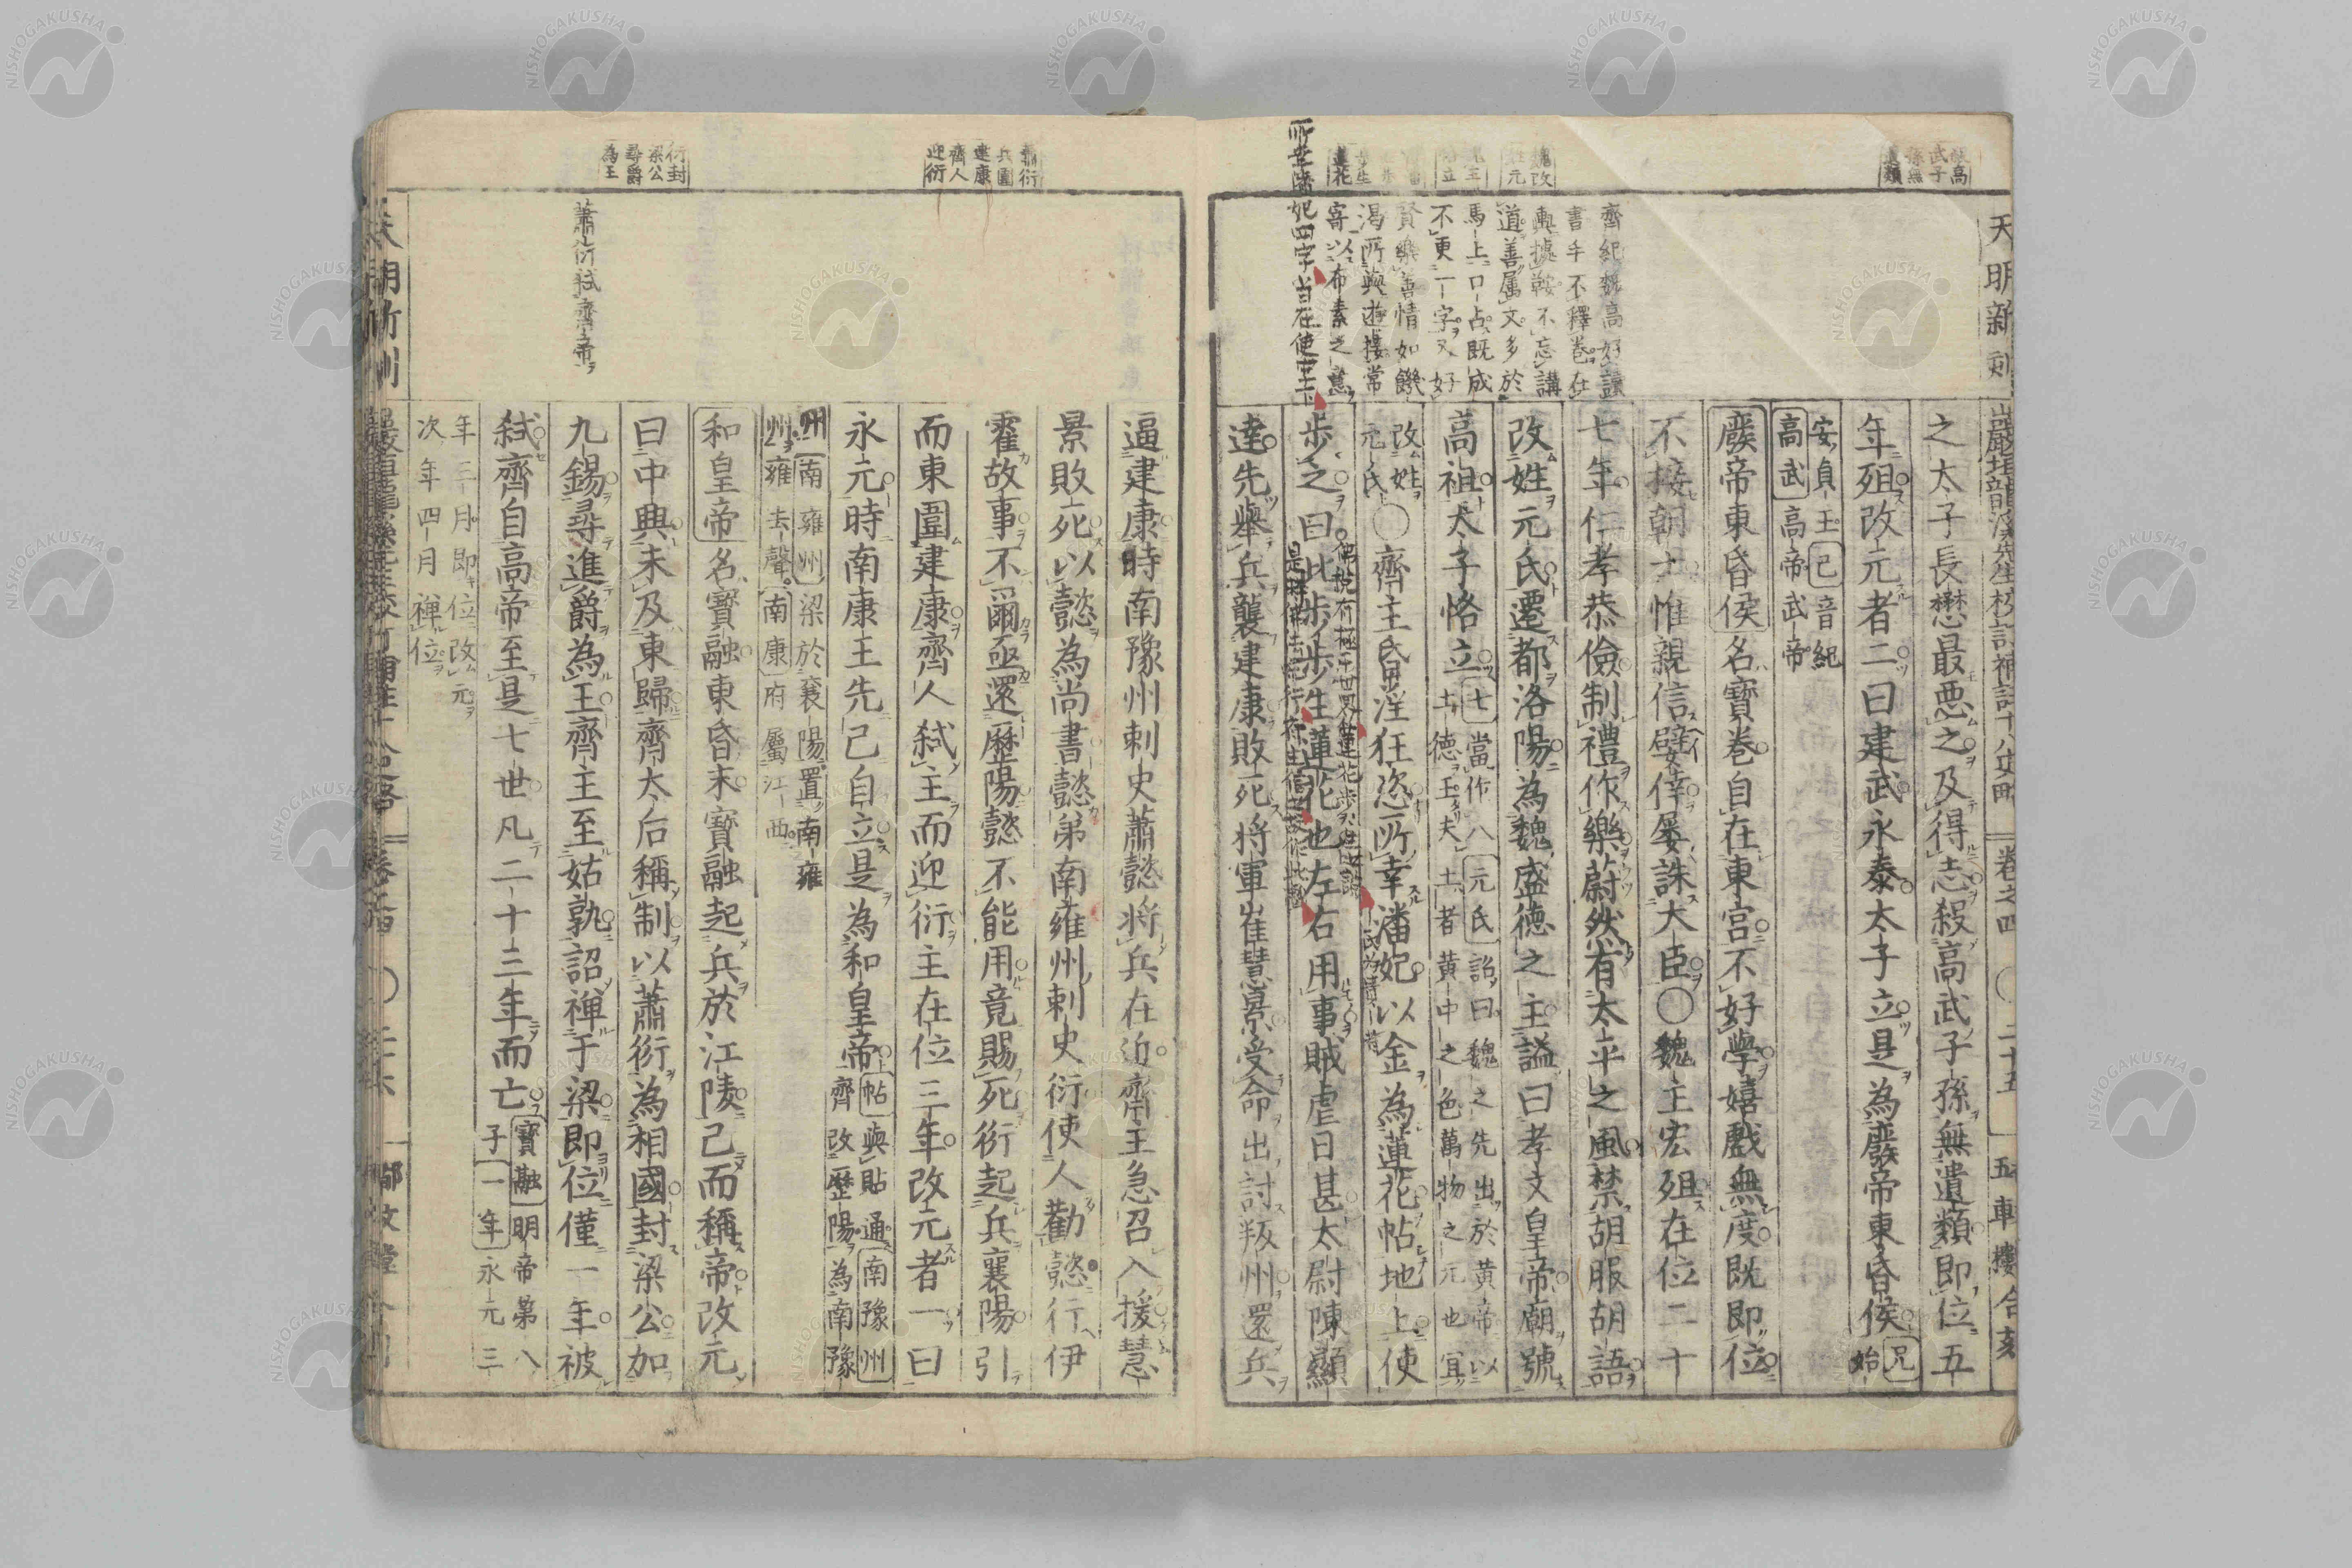 天明新刻
巖垣龍溪先生校訂補註十八史略 卷之四 〇 二十五 五車樓合刻
之太子長懋最惡之及得志殺高武子孫無遺類即位五
年殂改元者二曰建武永泰太子立是為廢帝東昏侯
兄始
安貞王己音紀
高武高帝武帝
廢帝東昏侯名寶卷自在東宮不好學嬉戲無度既即位
不接朝士惟親信嬖倖屡誅大臣〇魏主宏殂在位二十
七年仁孝恭儉制禮作樂蔚然有太平之風禁胡服胡語
改姓元氏遷都洛陽為魏盛德之主謚曰孝文皇帝廟號
高祖太子恪立
七當作八元氏詔曰魏之先出於黄帝以
土德王夫土者黄中之色萬物之元也宜
改姓
元氏
〇齊主昏淫狂恣所幸潘妃以金為蓮花帖地上使
步之曰此步步生蓮花也左右用事賊虐日甚太尉陳顯
達先舉兵襲建康敗死將軍崔慧景受命出討叛州還兵
魏改
姓元
齊紀魏高好讀
書手不釋卷在
輿據鞍不忘講
道善屬文多於
馬上口占既成
不更一字又好
賢樂善情如饑
渴所與遊接常
寄以布素之意
逼建康時南豫州刺史蕭懿將兵在近齊主急召入援慧
景敗死以懿為尚書懿弟南雍州刺史衍使人勸懿行伊
霍故事不爾亟還歷陽懿不能用竟賜死衍起兵襄陽引
而東圍建康齊人弒主而迎衍主在位三年改元者一曰
永元時南康王先已自立是為和皇帝
帖與貼通南豫州
齊改歷陽為南豫
州南雍州梁於襄陽置南雍
州雍去聲南康府屬江西
和皇帝名寶融東昏末寶融起兵於江陵已而稱帝改元
曰中興未及東歸齊太后稱制以蕭衍為相國封梁公加
九錫尋進爵為王齊主至姑孰詔禅于梁即位僅一年被
弒齊自高帝至是七世凡二十三年而亡
寶融明帝第八
子一年永元三
年三月即位改元
次年四月禅位
蕭衍
兵圍
建康
齊人
迎衍
衍封
梁公
尋爵
為王
蕭衍弒齊帝